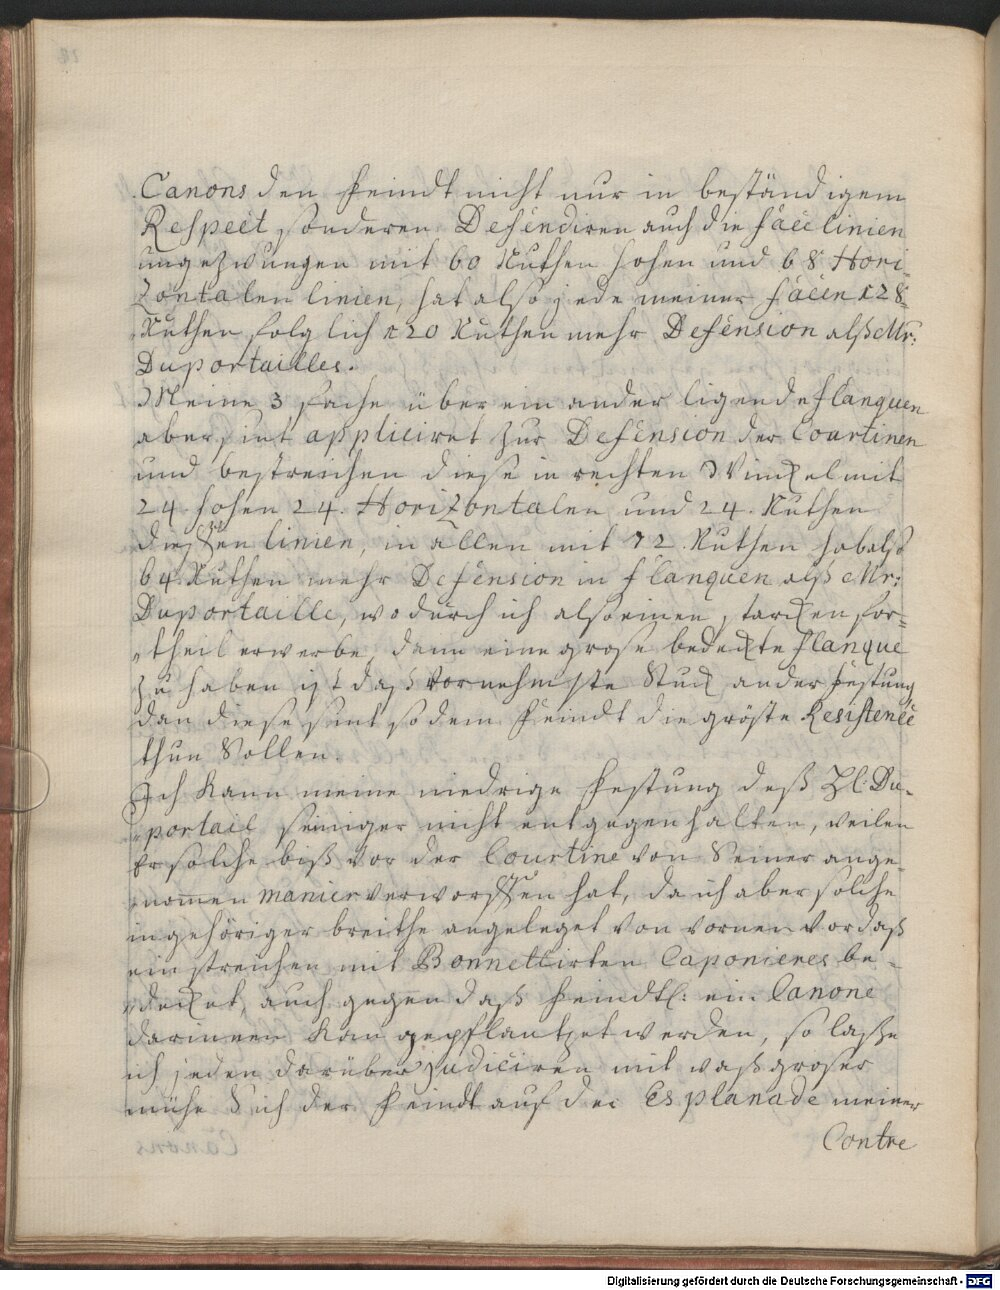 Canons den feindt nicht nur in beständigem
Respect sonderen Defendiren auch die facelinien
ungezwungen mit 60 Ruthen hohen und 68 Hori-
zontalen linien, hat also jede meiner facen 128
Ruthen folglich 120 Ruthen mehr Defension alß Mr:
Duportailles.
Meine 3 fache über ein ander ligende flanquen
aber sint appliciret zur Defension der Courtinen
und bestreichen diese in rechten Winckel mit
24 hohen 24. Horizontalen und 24. Ruthen
linien, in allen mit 72. Ruthen hab also
64 Ruthen mehr Defension in flanquen alß Mr:
Duportaille, wodurch ich also einen starcken for-
theil erwerbe, dann eine grose bedeckte flanque
zu haben ist daß vornehmste Stuck an der festung
dan diese sint so dem feindt die gröste Resistence
thun Sollen.
Ich Kann meine niedrige festung deß H: Du-
portail seiniger nicht entgegen halten, weilen
Er solche biß vor der Courtine von Seiner ange-
nom̅en manier verworffen hat, da ich aber solche
in gehöriger breithe angeleget von vornen vor daß
einstreichen mit Bonnettirten Caponieres be-
decket, auch gegen daß feindtl: ein Canone
darinnen Kan gepflantzet werden, so laße
ich jeden darüber judiciren mit waß groser
mühe Sich der feindt auf der Esplanade meiner
Contre
Digitalisierung gefördert durch die Deutsche Forschungsgemeinschaft - DFG